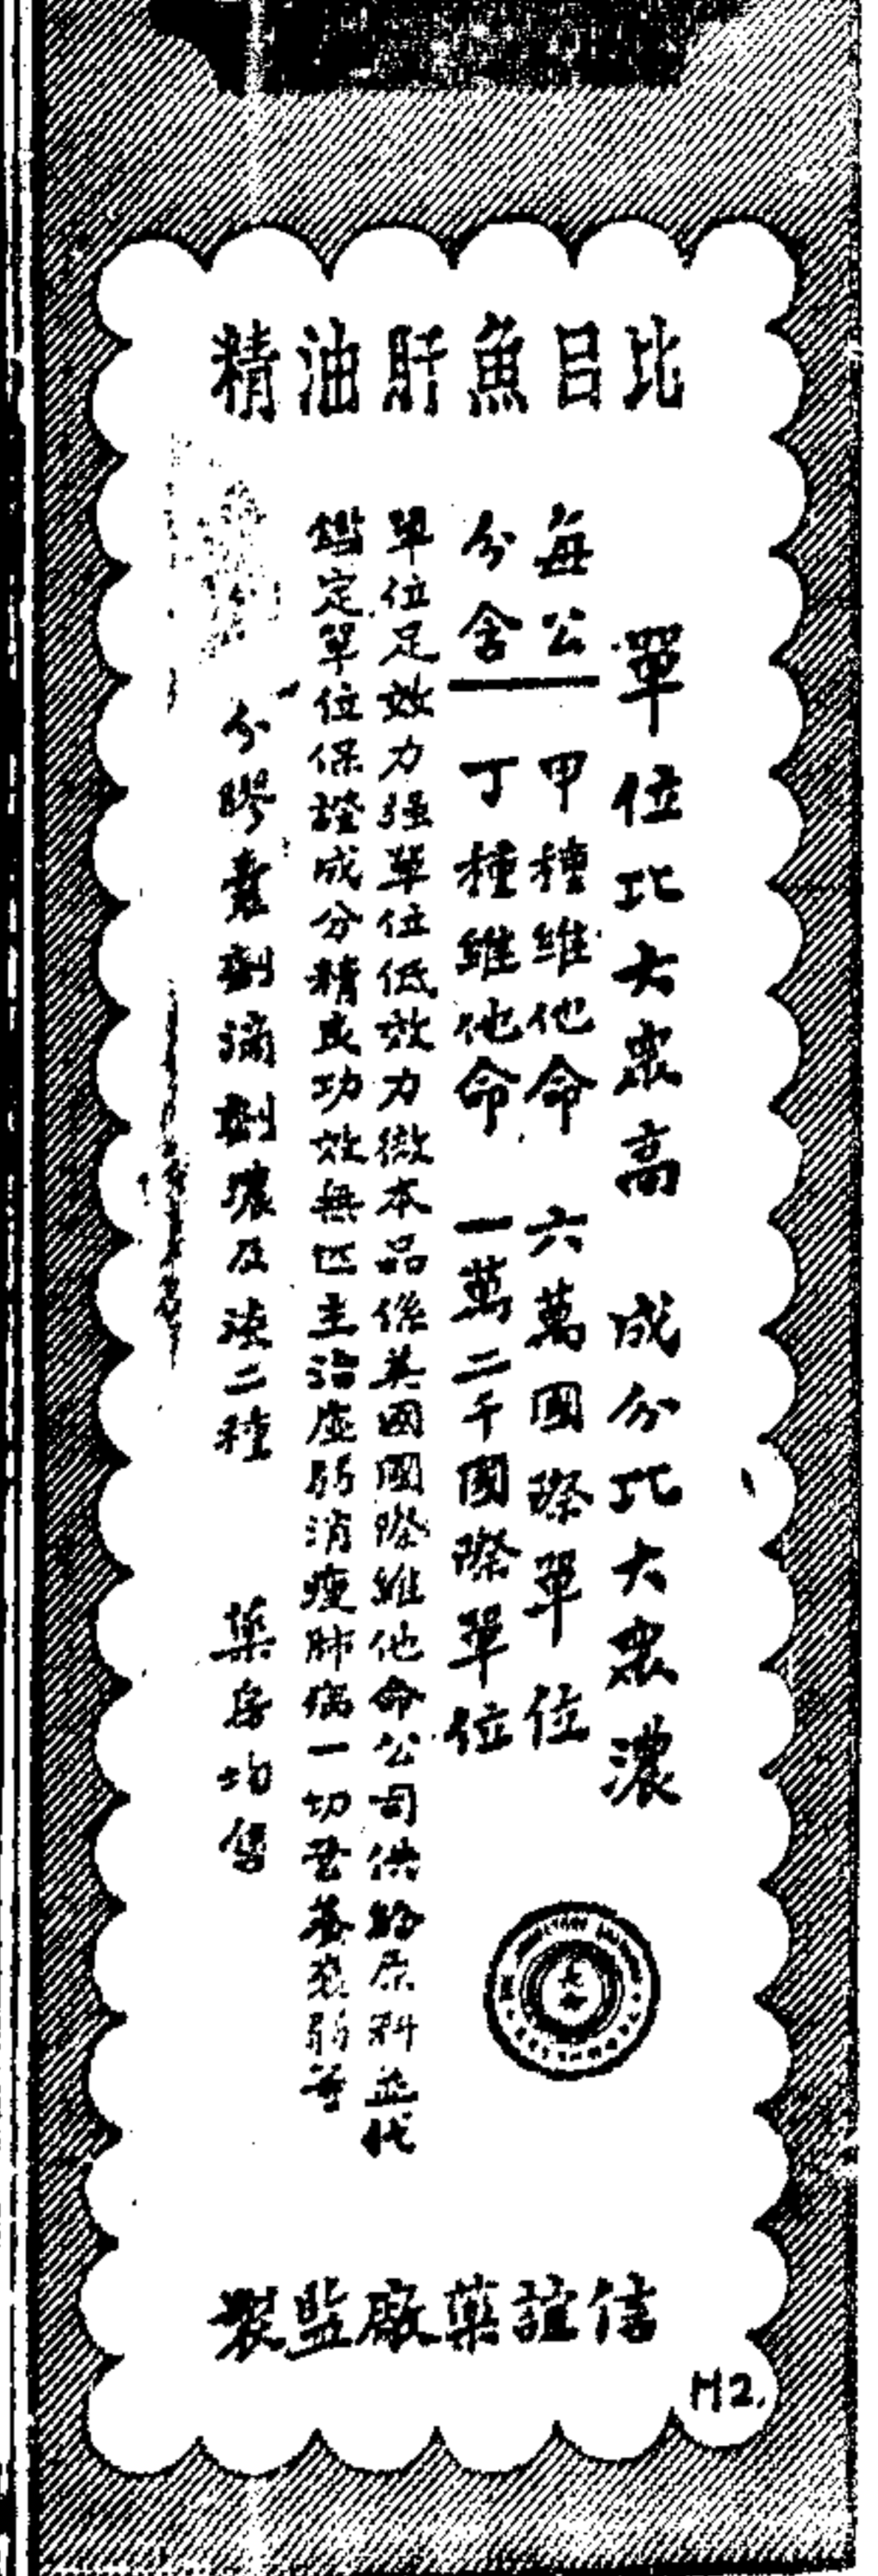 比目魚肝油精
單位比大衆高 成分比大衆濃
每公分含
甲種維他命 六萬國際單位
丁種維他命 一萬二千國際單位
單位足效力强單位低效力微本品係英國國際維他命公司供給原料並代
鑑定單位保證成分精良功效無匹主治虛弱消瘦肺病一切營養衰弱等
分膠囊劑滴劑濃及淡二種 藥房均售
信誼藥廠監製
H2.